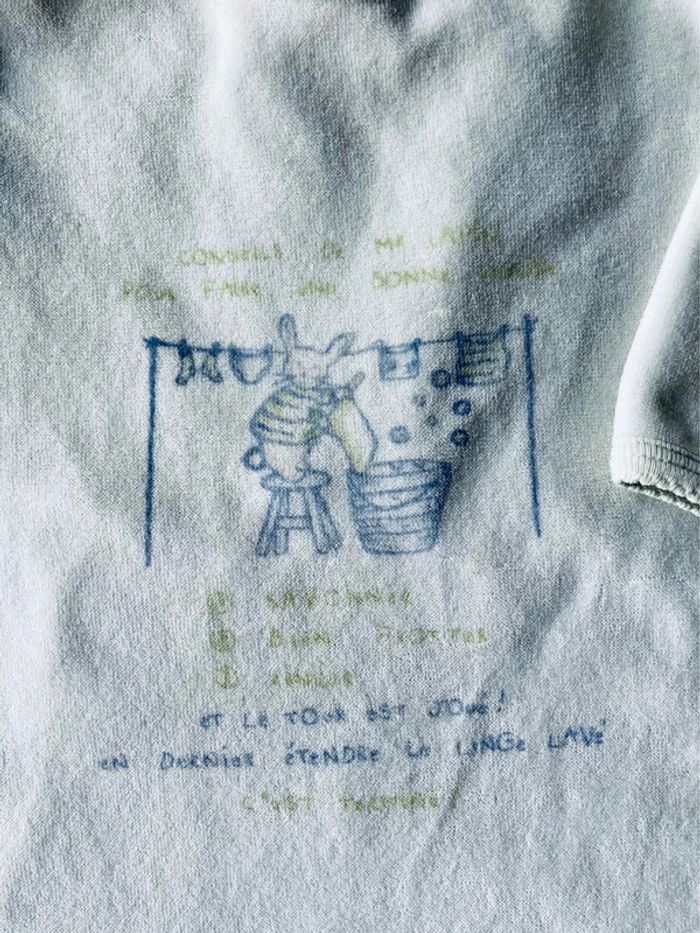 CONSEILS DE MR LAPIN
POUR FAIRE UNE BONNE LESSIVE
① SAVONNER
② BIEN FROTTER
③ RINCER
ET LE TOUR EST JOUÉ!
EN DERNIER ÉTENDRE LE LINGE LAVÉ
C'EST TERMINÉ!